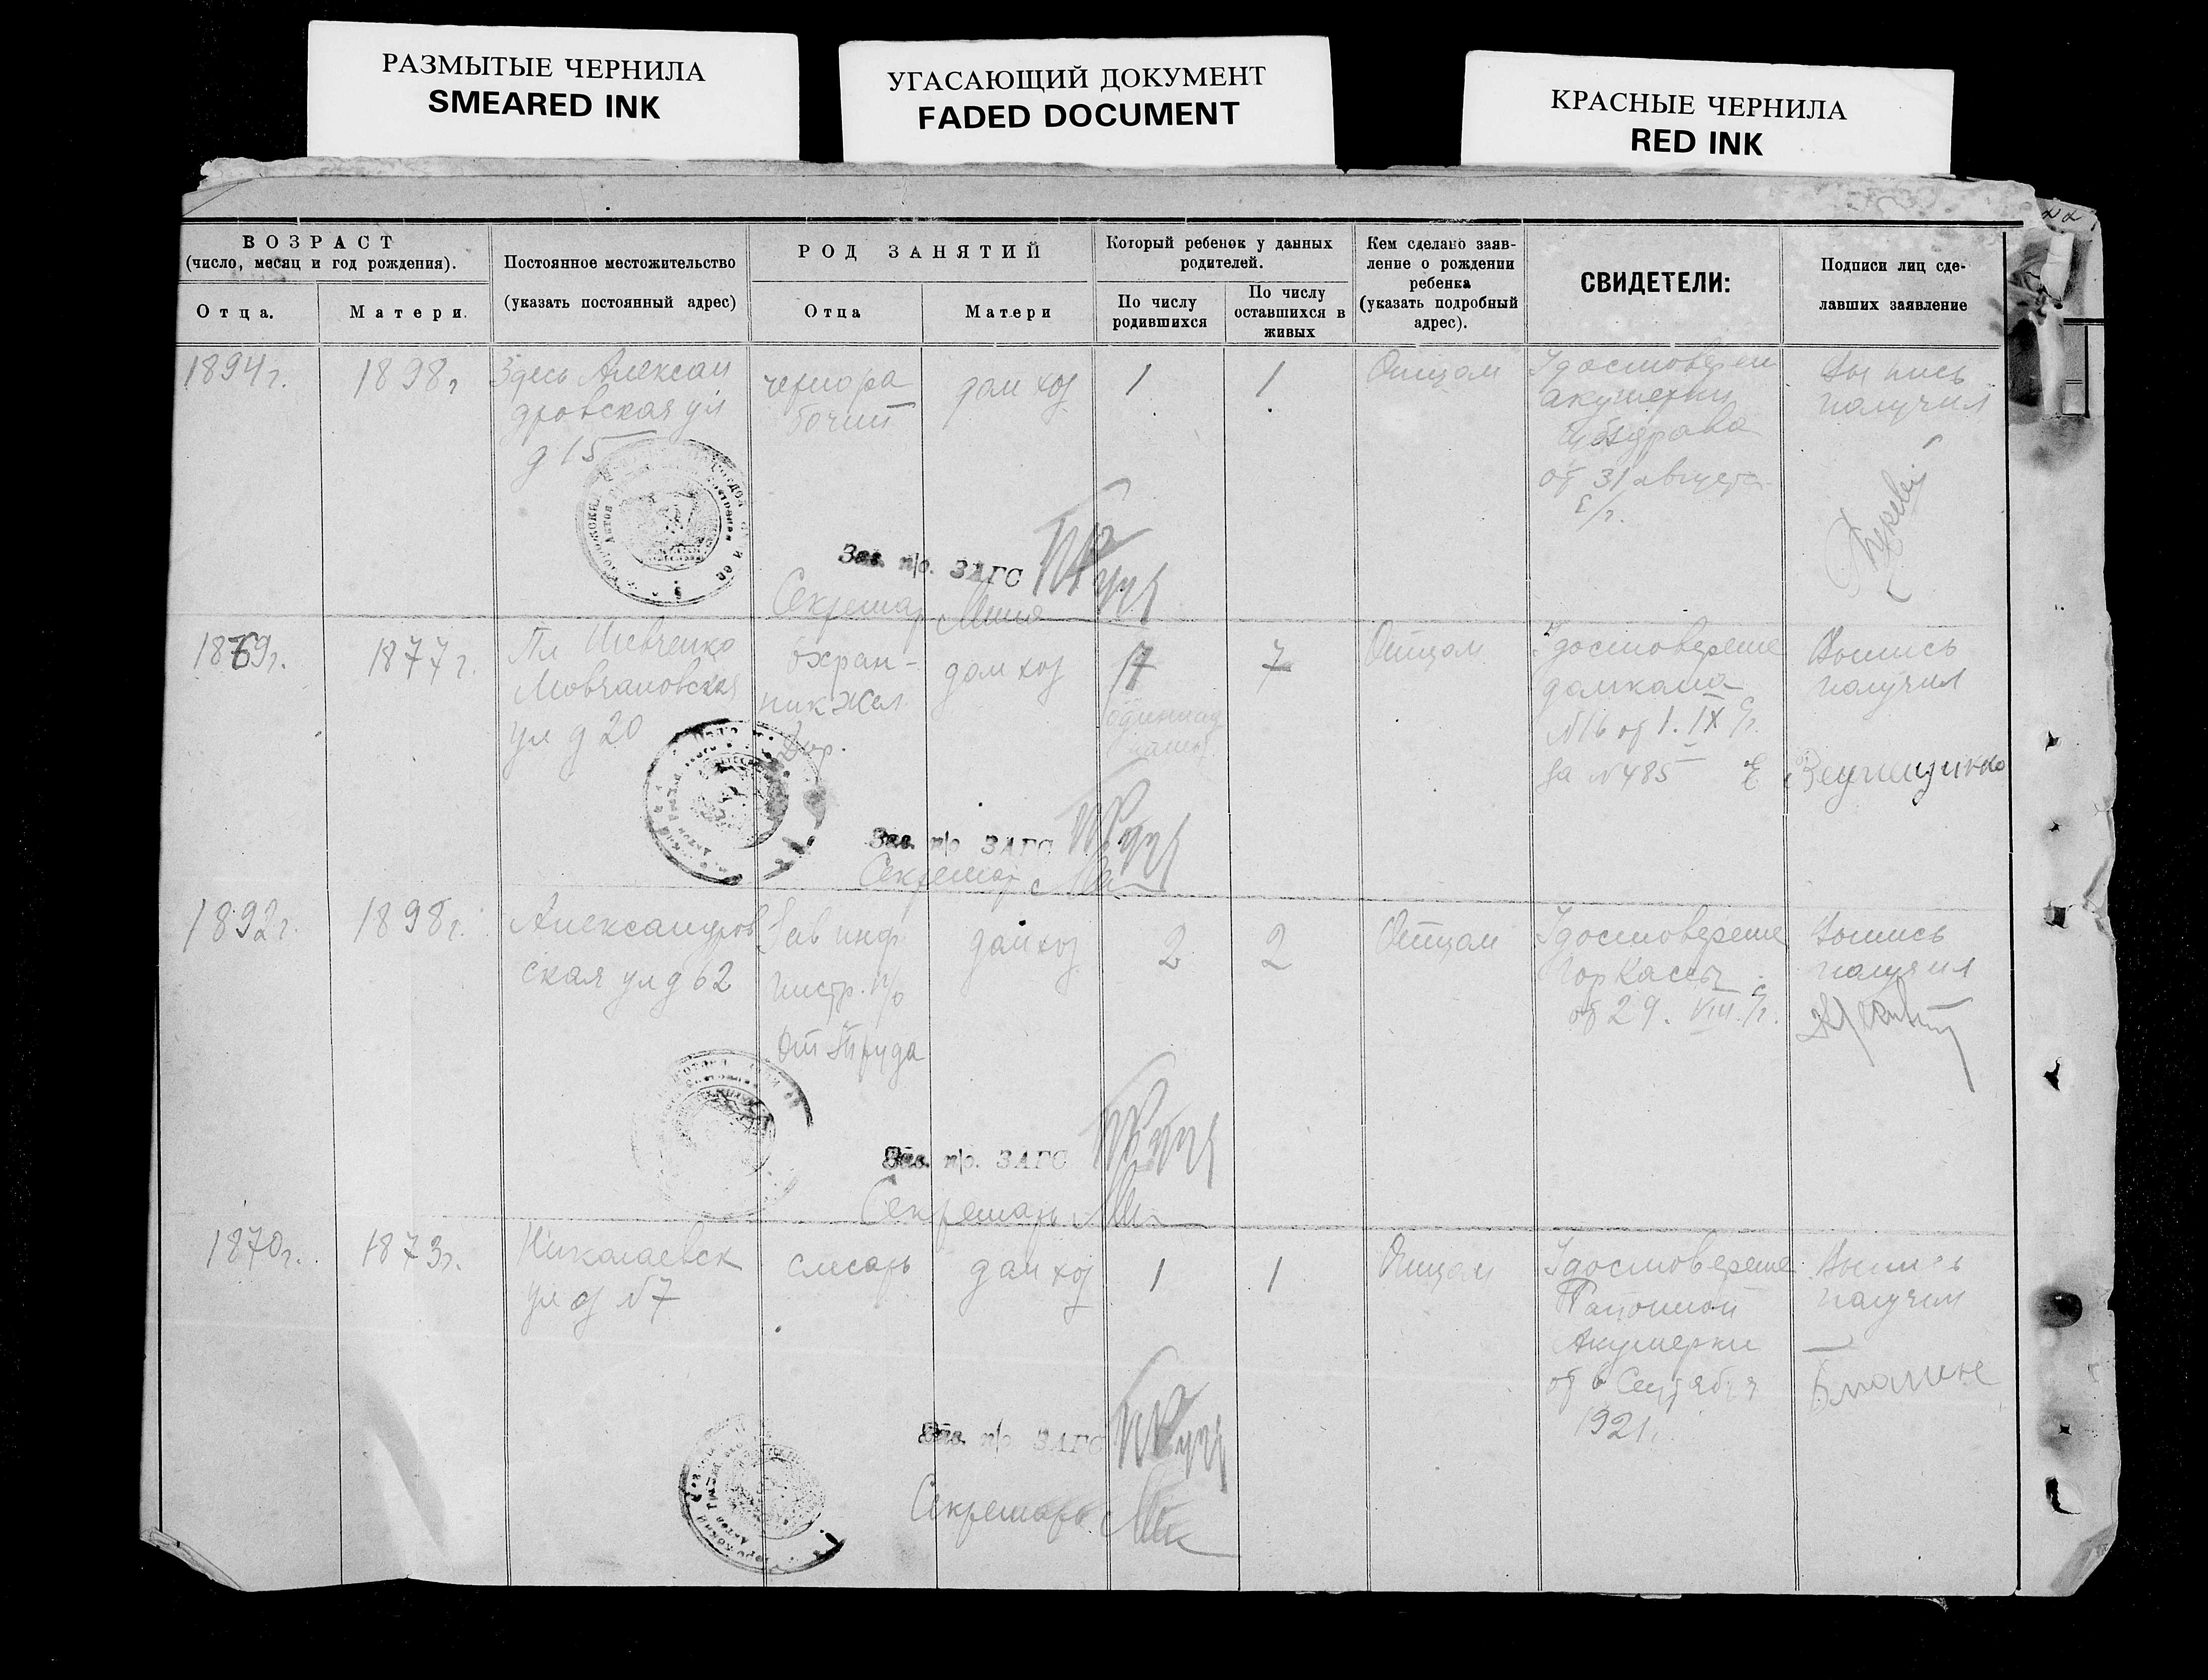 РАЗМЫТЫЕ ЧЕРНИЛА
SMEARED INK
УГАСАЮЩИЙ ДОКУМЕНТ
FADED DOCUMENT
КРАСНЫЕ ЧЕРНИЛА
RED INK
ВОЗРАСТ
(число, месяц и год рождения).
Отца.
Матери.
Постоянное местожительство
(указать постоянный адрес)
РОД ЗАНЯТИЙ
Отца
Матери
Который ребенок у данных
родителей.
По числу
родившихся
По числу
оставшихся в
живых
Кем сделано заяв-
ление о рождении
ребенка
(указать подробный
адрес).
СВИДЕТЕЛИ:
Подписи лиц сде-
лавших заявление
1894г.
1898г
Здесь Алексан
дровская ул
д 15
чернора
бочий
дом хоз
1
1
Отцом
Удостоверен
акушерки
от 31 августа
с/г.
Выпись
получил
Зав. п/о. ЗАГС
Секретар
1869г.
1877г.
Пл Шевченко
Мовчановская
ул д 20
охран-
ник жел
дор.
дом хоз
17
одиннад
7
Отцом
Удостоверение
домкома
N16 от 1.IX с/г.
за N485
Выпись
получил
Зав. п/о ЗАГС
Секретар
1892г.
1898г.
Александров
ская ул д 62
Зав инф
инстр. п/о
От Труда
дом хоз
2
2
Отцом
Удостоверение
ГорКассы
от 29. VIII. с/г.
Выпись
получил
Зав. п/о. ЗАГС
Секретарь
1870г.
1873г.
Николаевск
ул д N7
слесарь
дом хоз
1
1
Отцом
Удостоверение
Районной
Акушерки
от 6 Сентября
1921г.
Выпись
получил
Зав. п/о ЗАГС
Секретарь